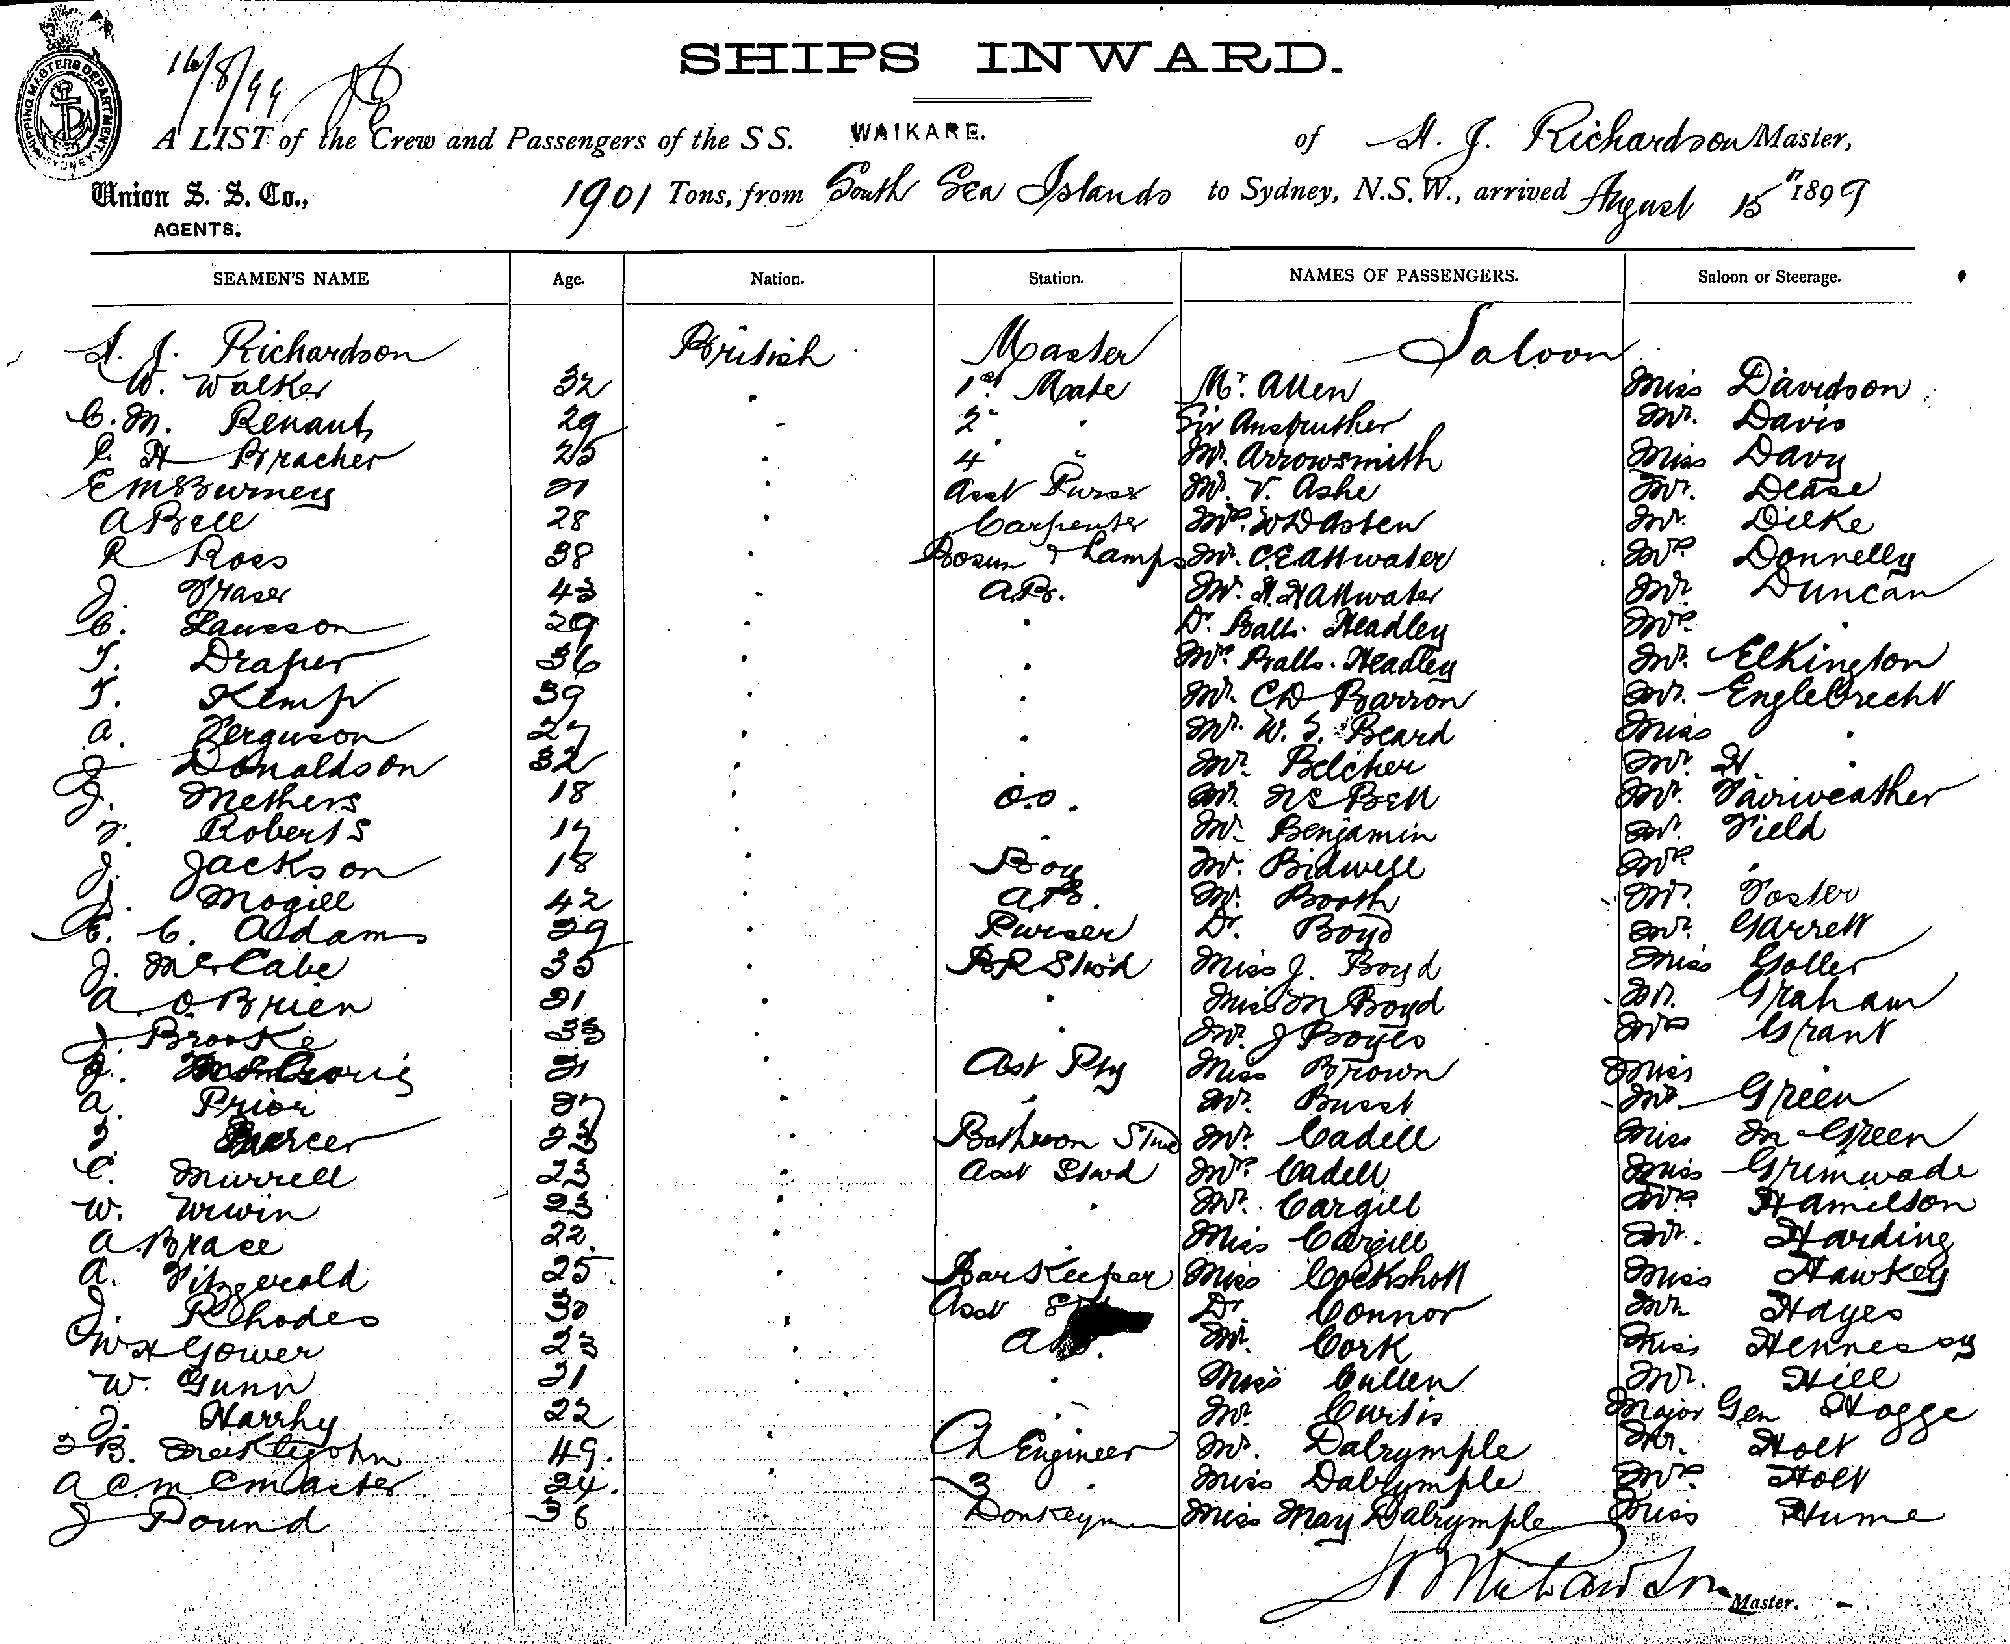 SHIPS INWARD.
16/8/99
SHIPPING MASTERS DEPARTMENT
A LIST of the Crew and Passengers of the S S. WAIKARE. of H. J. Richardson Master,
Union S. S. Co., 1901 Tons, from South Sea Islands to Sydney, N.S.W., arrived August 15th 1899
AGENTS.
SEAMEN'S NAME Age. Nation. Station. NAMES OF PASSENGERS. Saloon or Steerage.
H. J. Richardson British Master Saloon
W. Walker 32 " 1st Mate Mr. Allen Miss Davidson
C. M. Renaut 29 " 2 " Sir Anstruther Mr. Davis
P. H Bracher 25 " 4 " Mr. Arrowsmith Miss Davy
E McBurney 21 " Asst Purser Mr. V. Ashe Mr. Dease
A Bell 28 " Carpenter Mrs. W D Asten Mr. Dilke
R Ross 38 " Bosun & Lamps Mr. C E Attwater Mrs Donnelly
J. Fraser 43 " A.B. Mr. H. H Attwater Mr Duncan
C. Lawsson 29 " " Dr. Balls. Headley Mrs. "
T. Draper 36 " " Mrs Balls. Headley Mr. Elkington
T. Kemp 39 " " Mr. C D Barron Mr. Englebrecht
A. Ferguson 27 " " Mr. W. S. Beard Miss "
J Donaldson 32 " " Mr. Belcher Mr. H. "
J. Methers 18 " O.S. Mr. N E Bell Mr. Fairweather
F. Roberts 17 " " Mr. Benjamin Mr. Field
J. Jackson 18 " Boy Mr. Bidwell Mrs "
J. Mogill 42 " A.B. Mr. Booth Mr. Foster
E. C. Adams 29 " Purser Dr. Boyd Mr. Garrett
J. McCabe 35 " B R Stwd Miss J. Boyd Miss Goller
A O'Brien 21 " " Miss M Boyd Mr. Graham
J. Brooke 33 " " Mr. J Boyes Mrs Grant
J. 21 " Asst Pty Miss Brown Miss "
A. Prior 27 " " Mr. Busst Mr. Green
Mercer 23 " Bathroom Stwd Mr. Cadell Miss M Green
C. Murrell 23 " Asst Stwd Mrs. Cadell Miss Grimwade
W. Irwin 23 " " Mr. Cargill Mrs Hamilton
A. Brace 22. " " Miss Cargill Mr. Harding
A. Fitzgerald 25 " Bar Keeper Miss Cockshott Miss Hawkey
J. Rhodes 30 " Asst Dr. Connor Mr Hayes
W H Gower 23 " Mr. Cork Miss Hennessy
W. Gunn 21 " " Miss Cullen Mr. Hill
J. Harrhy 22 " Mr. Curtis Major Gen Hogge
B. 49. " Ch Engineer Mr. Dalrymple Mr. Holt
A C McMaster 24. " 3 " Miss Dalrymple Mrs Holt
J Pound 36 Donkeyman Miss May Dalrymple Miss Hume
H J Richardson Master.